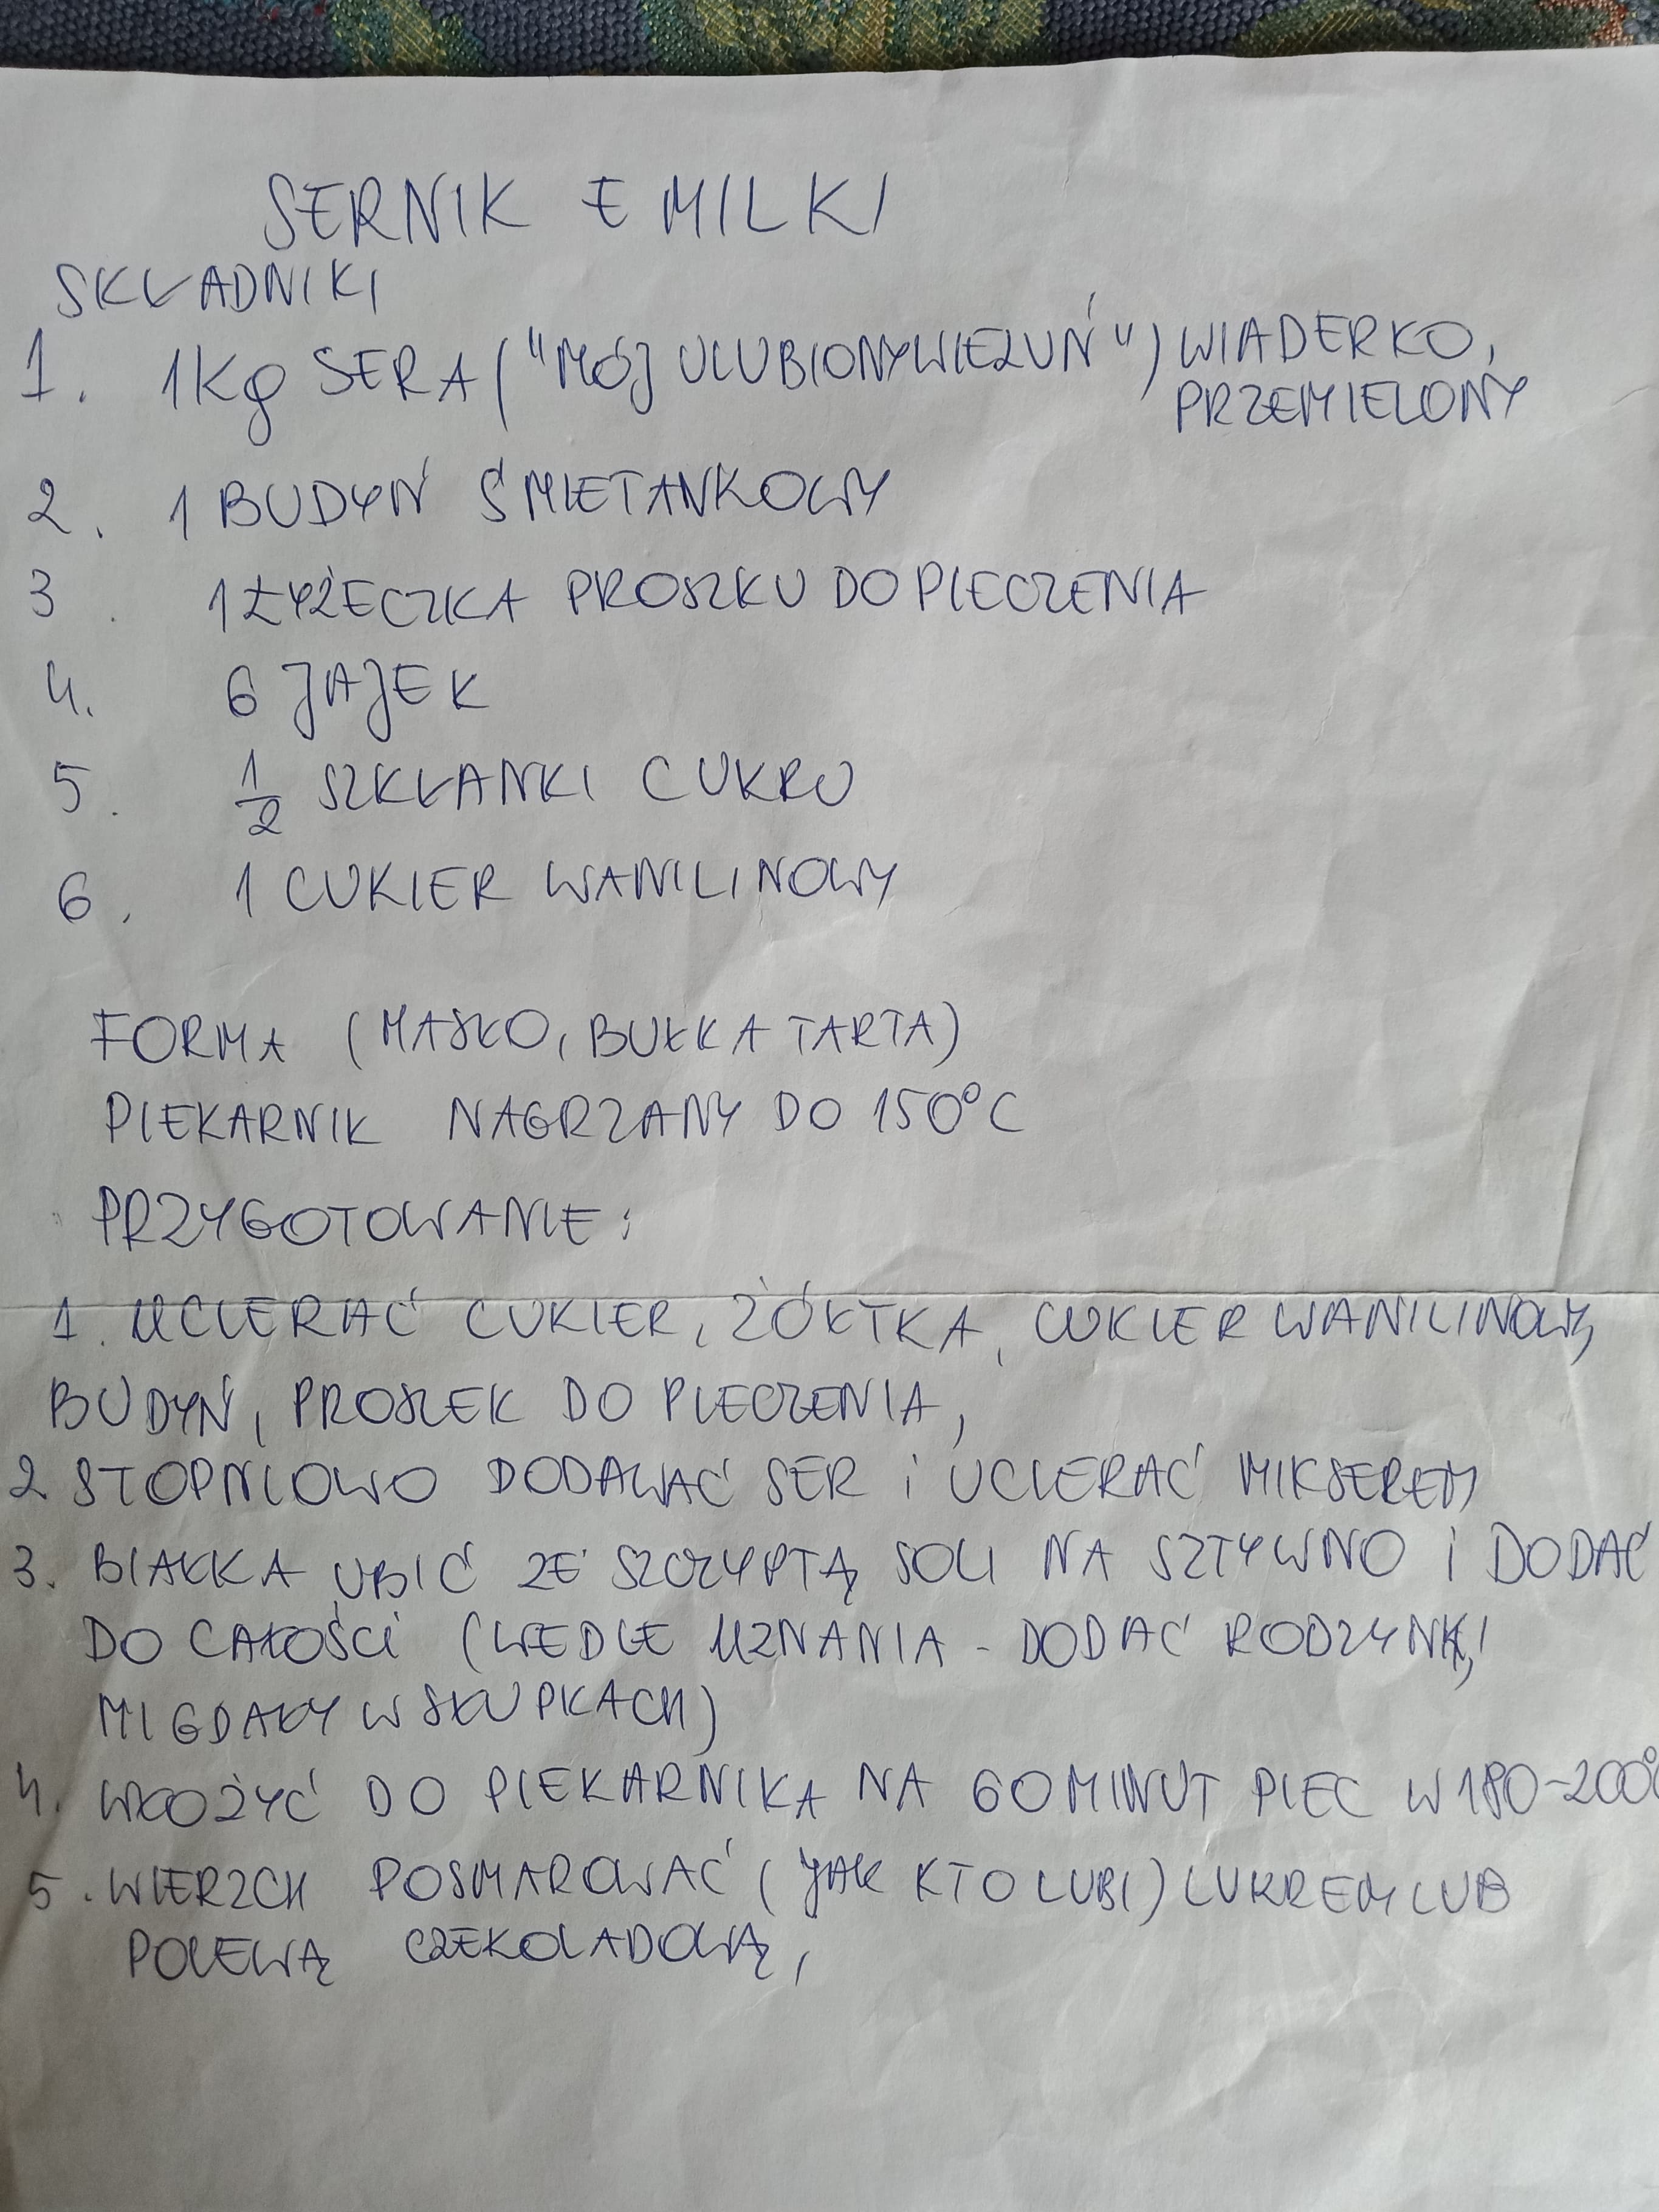 SERNIK EMILKI
SKŁADNIKI
1. 1Kg SERA ("MÓJ ULUBIONY WIELUŃ") WIADERKO,
PRZEMIELONY
2. 1 BUDYŃ ŚMIETANKOWY
3. 1 ŁYŻECZKA PROSZKU DO PIECZENIA
4. 6 JAJEK
5. 1/2 SZKLANKI CUKRU
6. 1 CUKIER WANILINOWY
FORMA (MASŁO, BUŁKA TARTA)
PIEKARNIK NAGRZANY DO 150°C
PRZYGOTOWANIE:
1. UCIERAĆ CUKIER, ŻÓŁTKA, CUKIER WANILINOWY,
BUDYŃ, PROSZEK DO PIECZENIA,
2 STOPNIOWO DODAWAĆ SER i UCIERAĆ MIKSEREM
3. BIAŁKA UBIĆ ZE SZCZYPTĄ SOLI NA SZTYWNO i DODAĆ
DO CAŁOŚCi (WEDLE UZNANIA - DODAĆ RODZYNKI,
MIGDAŁY W SŁUPKACH)
4. WŁOŻYĆ DO PIEKARNIKA NA 60 MINUT PIEC W 180-200°C
5. WIERZCH POSMAROWAĆ (JAK KTO LUBI) LUKREM LUB
POLEWĄ CZEKOLADOWĄ,